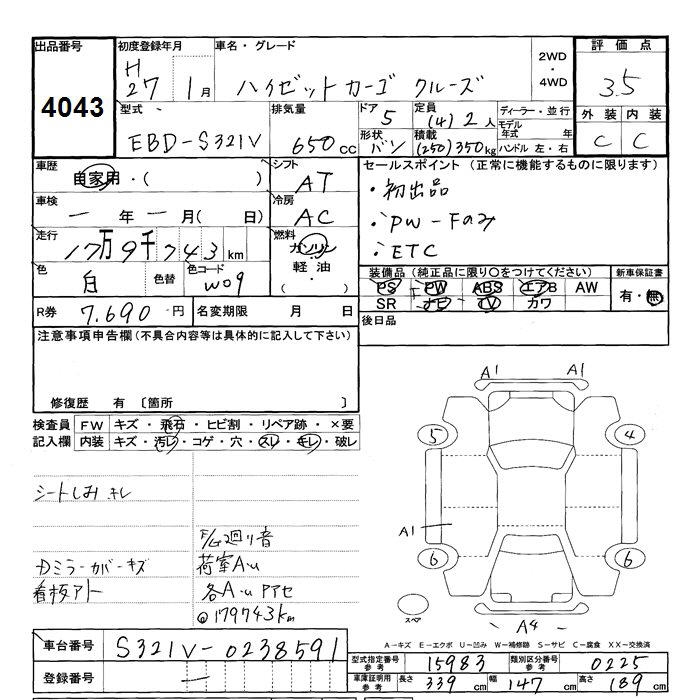 出品番号 4043
初度登録年月 H27 1月
車名・グレード ハイゼットカーゴ クルーズ
2WD・4WD
評価点 3.5
型式 EBD-S321V
排気量 650cc
ドア 5
定員 (4) 2人
形状 バン
積載 (250)350kg
ディーラー・並行
モデル年式 年
ハンドル 左・右
外装 内装
C C
車歴 自家用・( )
シフト AT
セールスポイント (正常に機能するものに限ります)
・初出品
・PW-Fのみ
・ETC
車検 ー年ー月( 日)
冷房 AC
走行 17万9千743km
燃料 ガソリン 軽油・( )
色 白 色替
色コード W09
装備品(純正品に限り○をつけてください)
PS PW ABS エアB AW
SR ナビ TV カワ
新車保証書 有・無
R券 7.690円
名変期限 月 日
後日品
注意事項申告欄(不具合内容等は具体的に記入して下さい)
修復歴 有 〔箇所 〕
検査員記入欄
FW キズ・飛石・ヒビ割・リペア跡・×要
内装 キズ・汚レ・コゲ・穴・スレ・キレ・破レ
シートしみ キレ
F/G廻り音
Dミラーカバーキズ
荷室Au
看板アト
各Au Pアセ
@179743km
A1 A1
5 4
A1
6 6
スペア
A4
A-キズ E-エクボ U-凹み W-補修跡 S-サビ C-腐食 XX-交換済
車台番号 S321V-0238591
登録番号 ー
型式指定番号 参考 15983
類別区分番号 参考 0225
車庫証明用 参考 長さ 339cm 幅 147cm 高さ 189cm